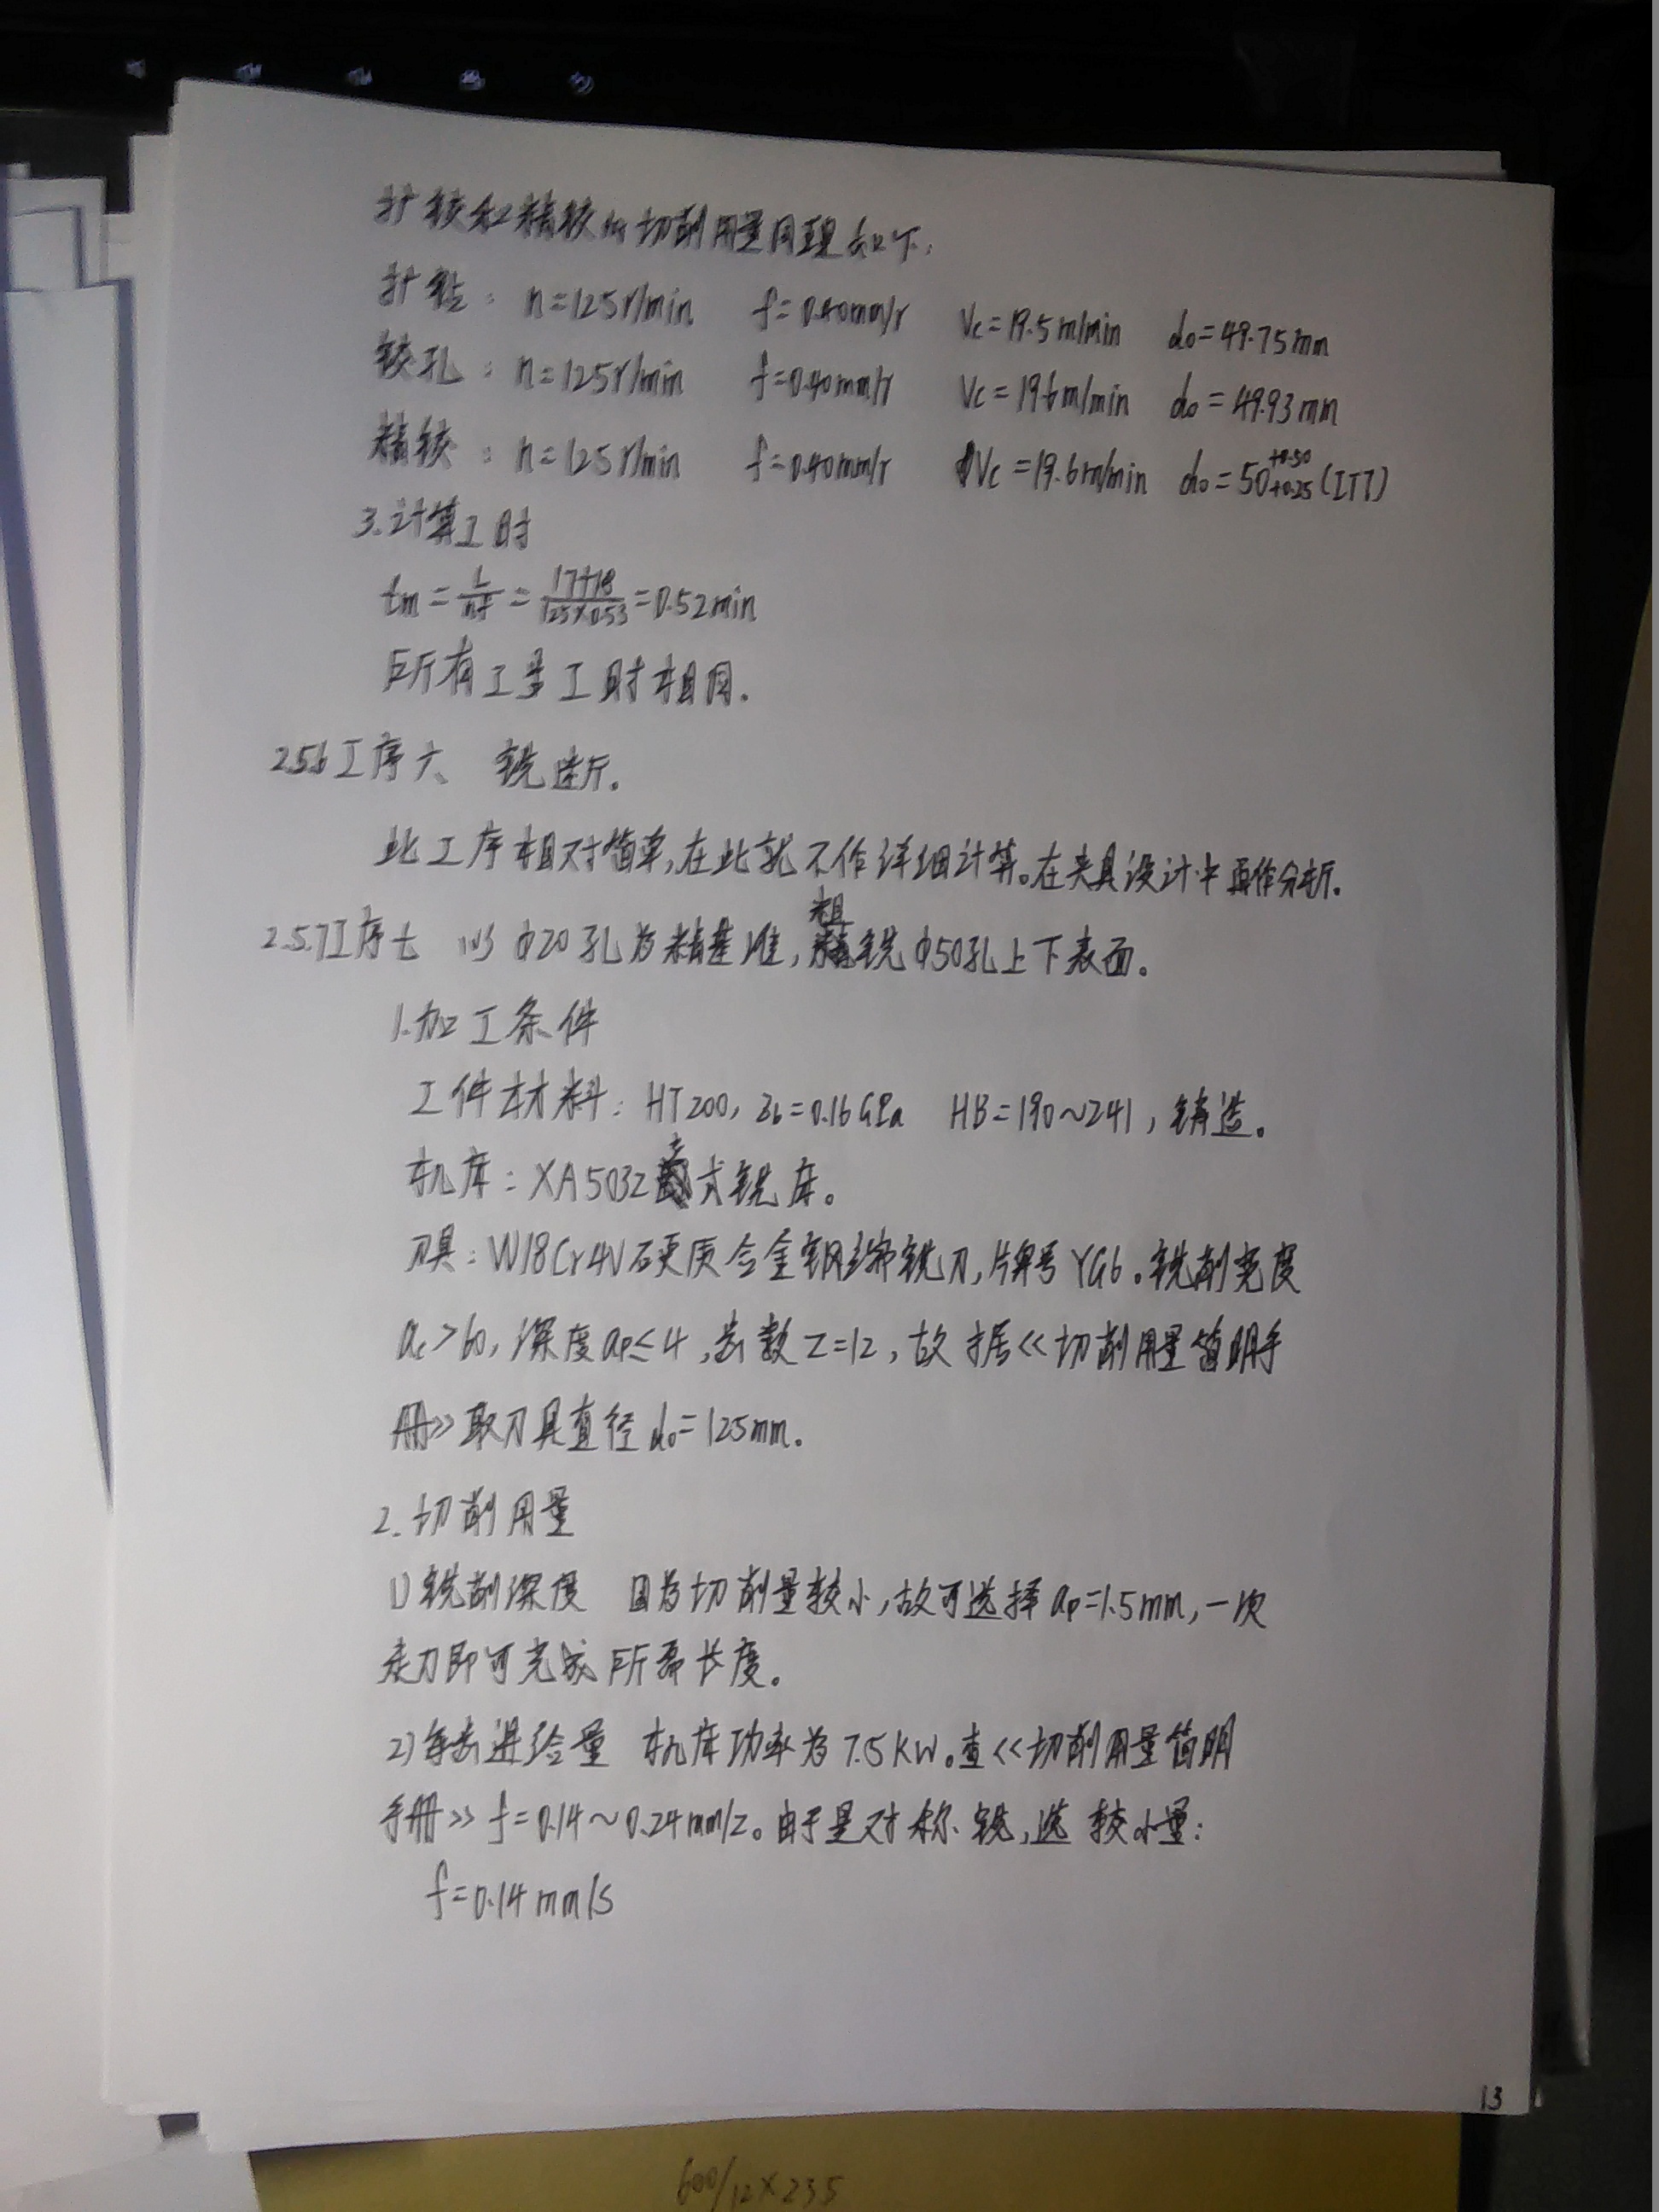 扩铰和精铰的切削用量同理如下:
扩钻: n=125r/min f=0.40mm/r Vc=19.5m/min d0=49.75mm
铰孔: n=125r/min f=0.40mm/r Vc=19.6m/min d0=49.93mm
精铰: n=125r/min f=0.40mm/r Vc=19.6m/min d0=50+0.50+0.25(IT7)
3.计算工时
tm=L/nf=17+18/125×0.53=0.52min
所有工步工时相同.
2.5.6工序六 铣断.
此工序相对简单,在此就不作详细计算。在夹具设计中再作分析.
2.5.7工序七 以φ20孔为精基准,粗铣φ50孔上下表面。
1.加工条件
工件材料: HT200, δb=0.16GPa HB=190~241, 铸造。
机床: XA5032立式铣床。
刀具: W18Cr4V硬质合金钢端铣刀,牌号YG6。铣削宽度
ae>60, 深度ap≤4,齿数Z=12, 故据<<切削用量简明手
册>>取刀具直径d0=125mm.
2.切削用量
1)铣削深度 因为切削量较小,故可选择ap=1.5mm,一次
走刀即可完成所需长度。
2)每齿进给量 机床功率为7.5KW。查<<切削用量简明
手册>> f=0.14~0.24mm/z。由于是对称铣,选较小量:
f=0.14mm/s
13
600/12×235